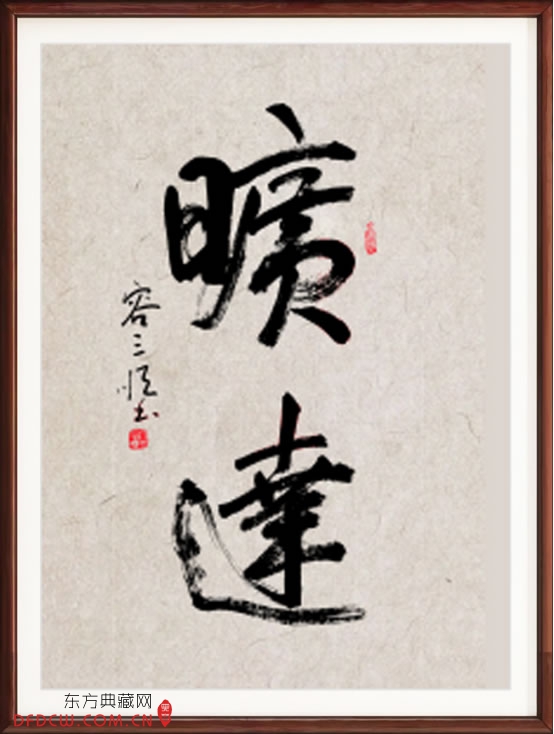 曠達
容三恒书
东方典藏网
DFDCW.COM.CN